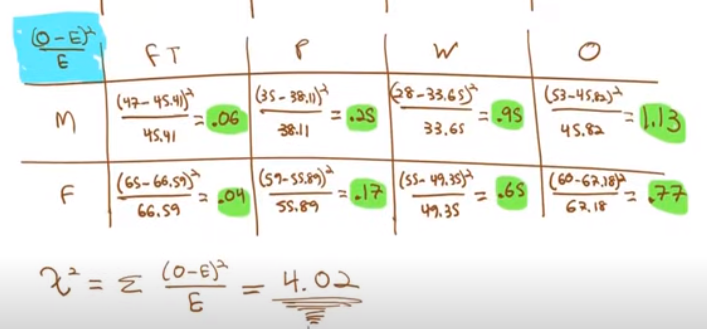 (O-E)²/E FT P W O
M (47-45.41)²/45.41 = .06 (35-38.11)²/38.11 = .25 (28-33.65)²/33.65 = .95 (53-45.82)²/45.82 = 1.13
F (65-66.59)²/66.59 = .04 (59-55.89)²/55.89 = .17 (55-49.35)²/49.35 = .65 (60-67.18)²/67.18 = .77
χ² = Σ (O-E)²/E = 4.02